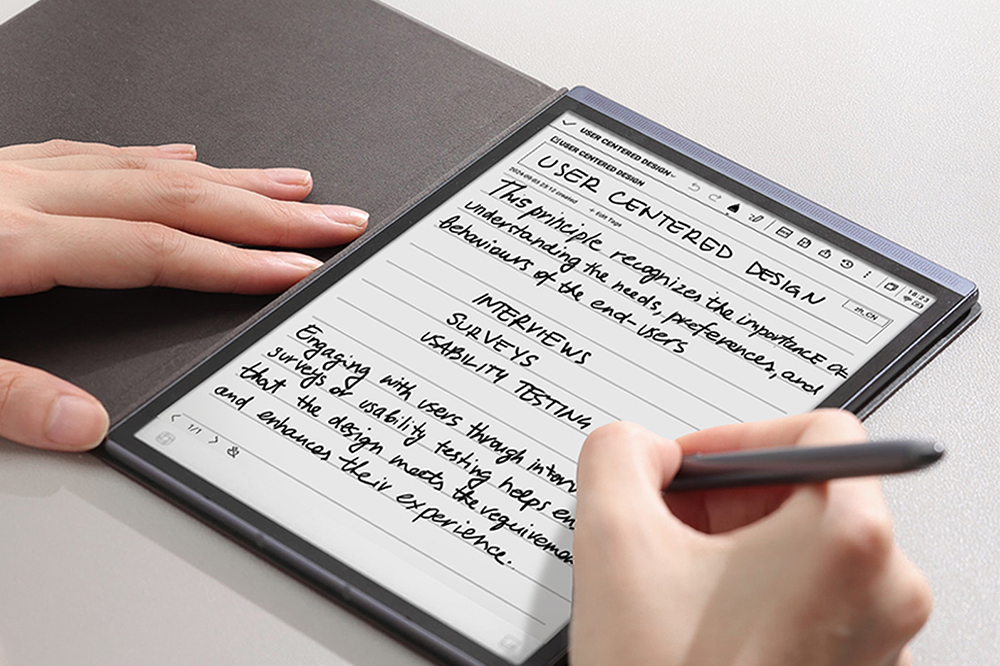 USER CENTERED DESIGN
USER CENTERED DESIGN
18:23
USER CENTERED DESIGN
2024-09-03 23:12 created + Edit Tags
zh_CN
This principle recognizes the importance of
understanding the needs, preferences, and
behaviours of the end-users
INTERVIEWS
SURVEYS
USABILITY TESTING
Engaging with users through interv
surveys or usability testing helps en
that the design meets the requiremen
and enhances their experience.
1/1